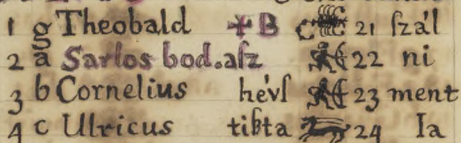 1 g Theobald + B 21 ſzál
2 a Sarlos bod.aſz 22 ni
3 b Cornelius hévſ 23 ment
4 c Ulricus tibta 24 Ia